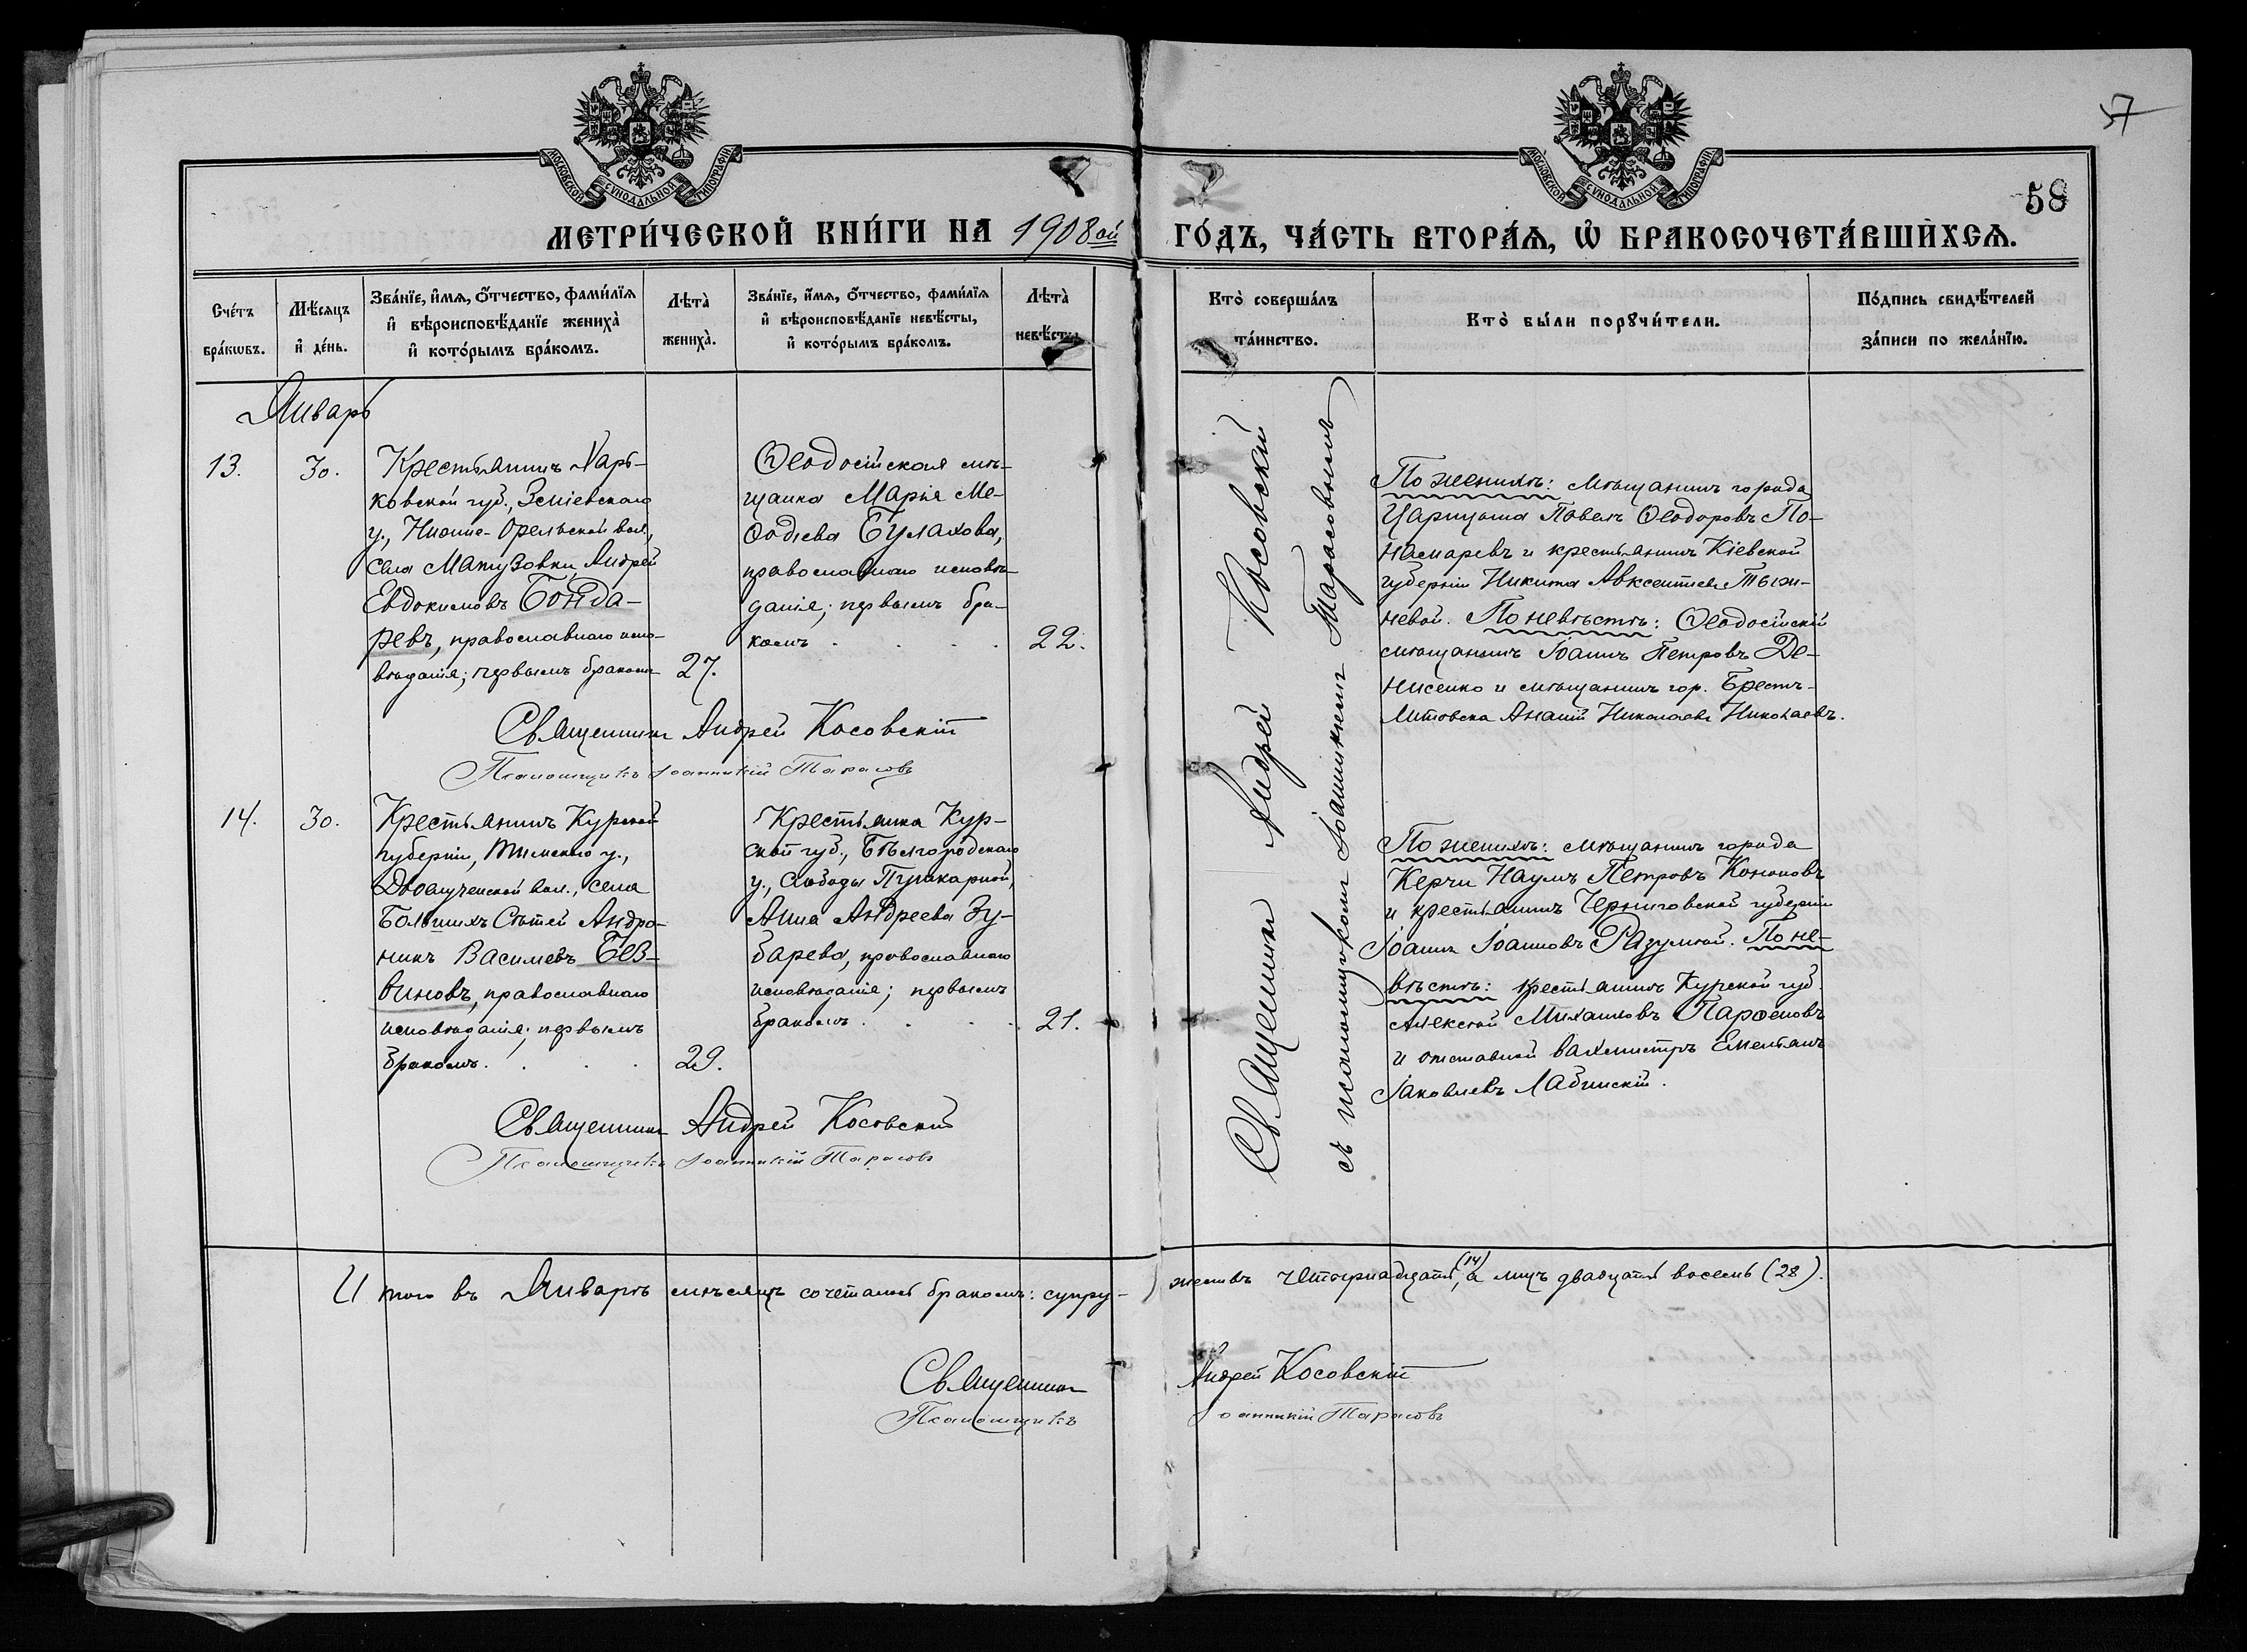 57
58
МОСКОВСКОЙ СѴНОДАЛЬНОЙ ТИПОГРАФІИ.
МОСКОВСКОЙ СѴНОДАЛЬНОЙ ТИПОГРАФІИ.
МЕТРИ́ЧЕСКОЙ КНИ́ГИ НА 1908ой ГО́ДЪ, ЧА́СТЬ ВТОРА́Я, Ѡ҆ БРАКОСОЧЕТА́ВШИХСЯ.
Сче́тъ
бра́кѡвъ.
Мѣ́сяцъ
и҆ де́нь.
Зва́нїе, и҆́мя, ѻ҆́тчество, фами́лїя
и҆ вѣроисповѣ́данїе жениха̀
и҆ кото́рымъ бра́комъ.
Лѣта̀
жениха̀.
Зва́нїе, и҆́мя, ѻ҆́тчество, фами́лїя
и҆ вѣроисповѣ́данїе невѣ́сты,
и҆ кото́рымъ бра́комъ.
Лѣта̀
невѣ́сты.
Кто̀ соверша́лъ
та́инство.
Кто̀ бы́ли порꙋчи́тели.
По́дпись свидѣ́телей
за́писи по жела́нїю.
Январь
13.
30.
Крестьянинъ Харь-
ковской губ., Зміевскаго
у., Нижне-Орельской вол.,
села Матузовки, Андрей
Евдокимовъ Бонда-
ревъ, православнаго испо-
вѣданія; первымъ бракомъ
27.
Ѳеодосійская мѣ-
щанка Марія Ме-
ѳодіева Булахова,
православнаго исповѣ-
данія; первымъ бра-
комъ . . . .
22.
Священникъ Андрей Косовскій
Псаломщикъ Іоанникій Тарасовъ
Священникъ Андрей Косовскій
съ псаломщикомъ Іоанникіемъ Тарасовымъ
По женихѣ: мѣщанинъ города
Царицына Павелъ Ѳеодоровъ По-
намаревъ и крестьянинъ Кіевской
губерніи Никита Авксентіевъ
невой. По невѣстѣ: Ѳеодосійскій
мѣщанинъ Іоаннъ Петровъ Де-
нисенко и мѣщанинъ гор. Брестъ-
Литовска Ананій Николаевъ Николаевъ.
14.
30.
Крестьянинъ Курской
губерніи, Тимскаго у.,
Двоелученской вол., села
Большихъ Сѣтей Андро-
никъ Васильевъ Без-
виновъ, православнаго
исповѣданія; первымъ
бракомъ. . . .
29.
Крестьянка Кур-
ской губ., Бѣлгородскаго
у., слободы Пушкарной,
Анна Андреева Зу-
барева, православнаго
исповѣданія; первымъ
бракомъ . . . .
21.
Священникъ Андрей Косовскій
Псаломщикъ Іоанникій Тарасовъ
По женихѣ: мѣщанинъ города
Керчи Наумъ Петровъ Кононовъ
и крестьянинъ Черниговской губерніи
Іоаннъ Іоанновъ Разумной. По не-
вѣстѣ: крестьянинъ Курской губ.
Алексѣй Михаиловъ Парѳеновъ
и отставной вахмистръ Емельянъ
Іаковлевъ Лабинскій.
Итого въ Январѣ мѣсяцѣ сочеталось бракомъ: супру-жествъ четырнадцать (14), а лицъ двадцать восемь (28).
Священникъ Андрей Косовскій
Псаломщикъ Іоанникій Тарасовъ